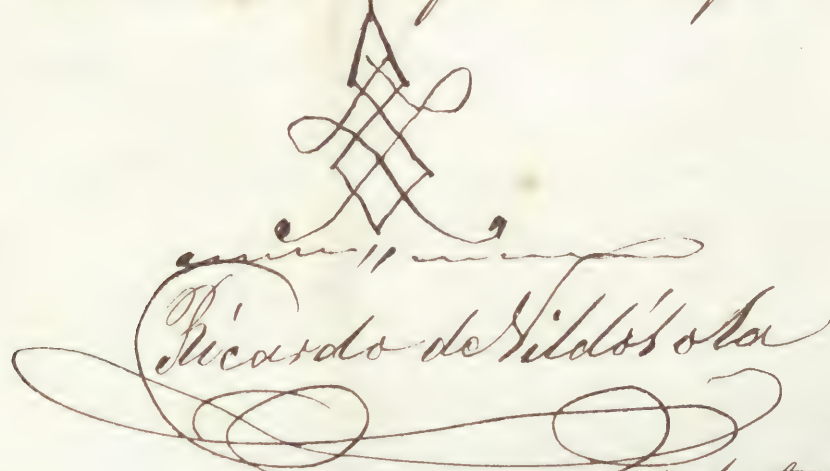 Ricardo de Vildósola